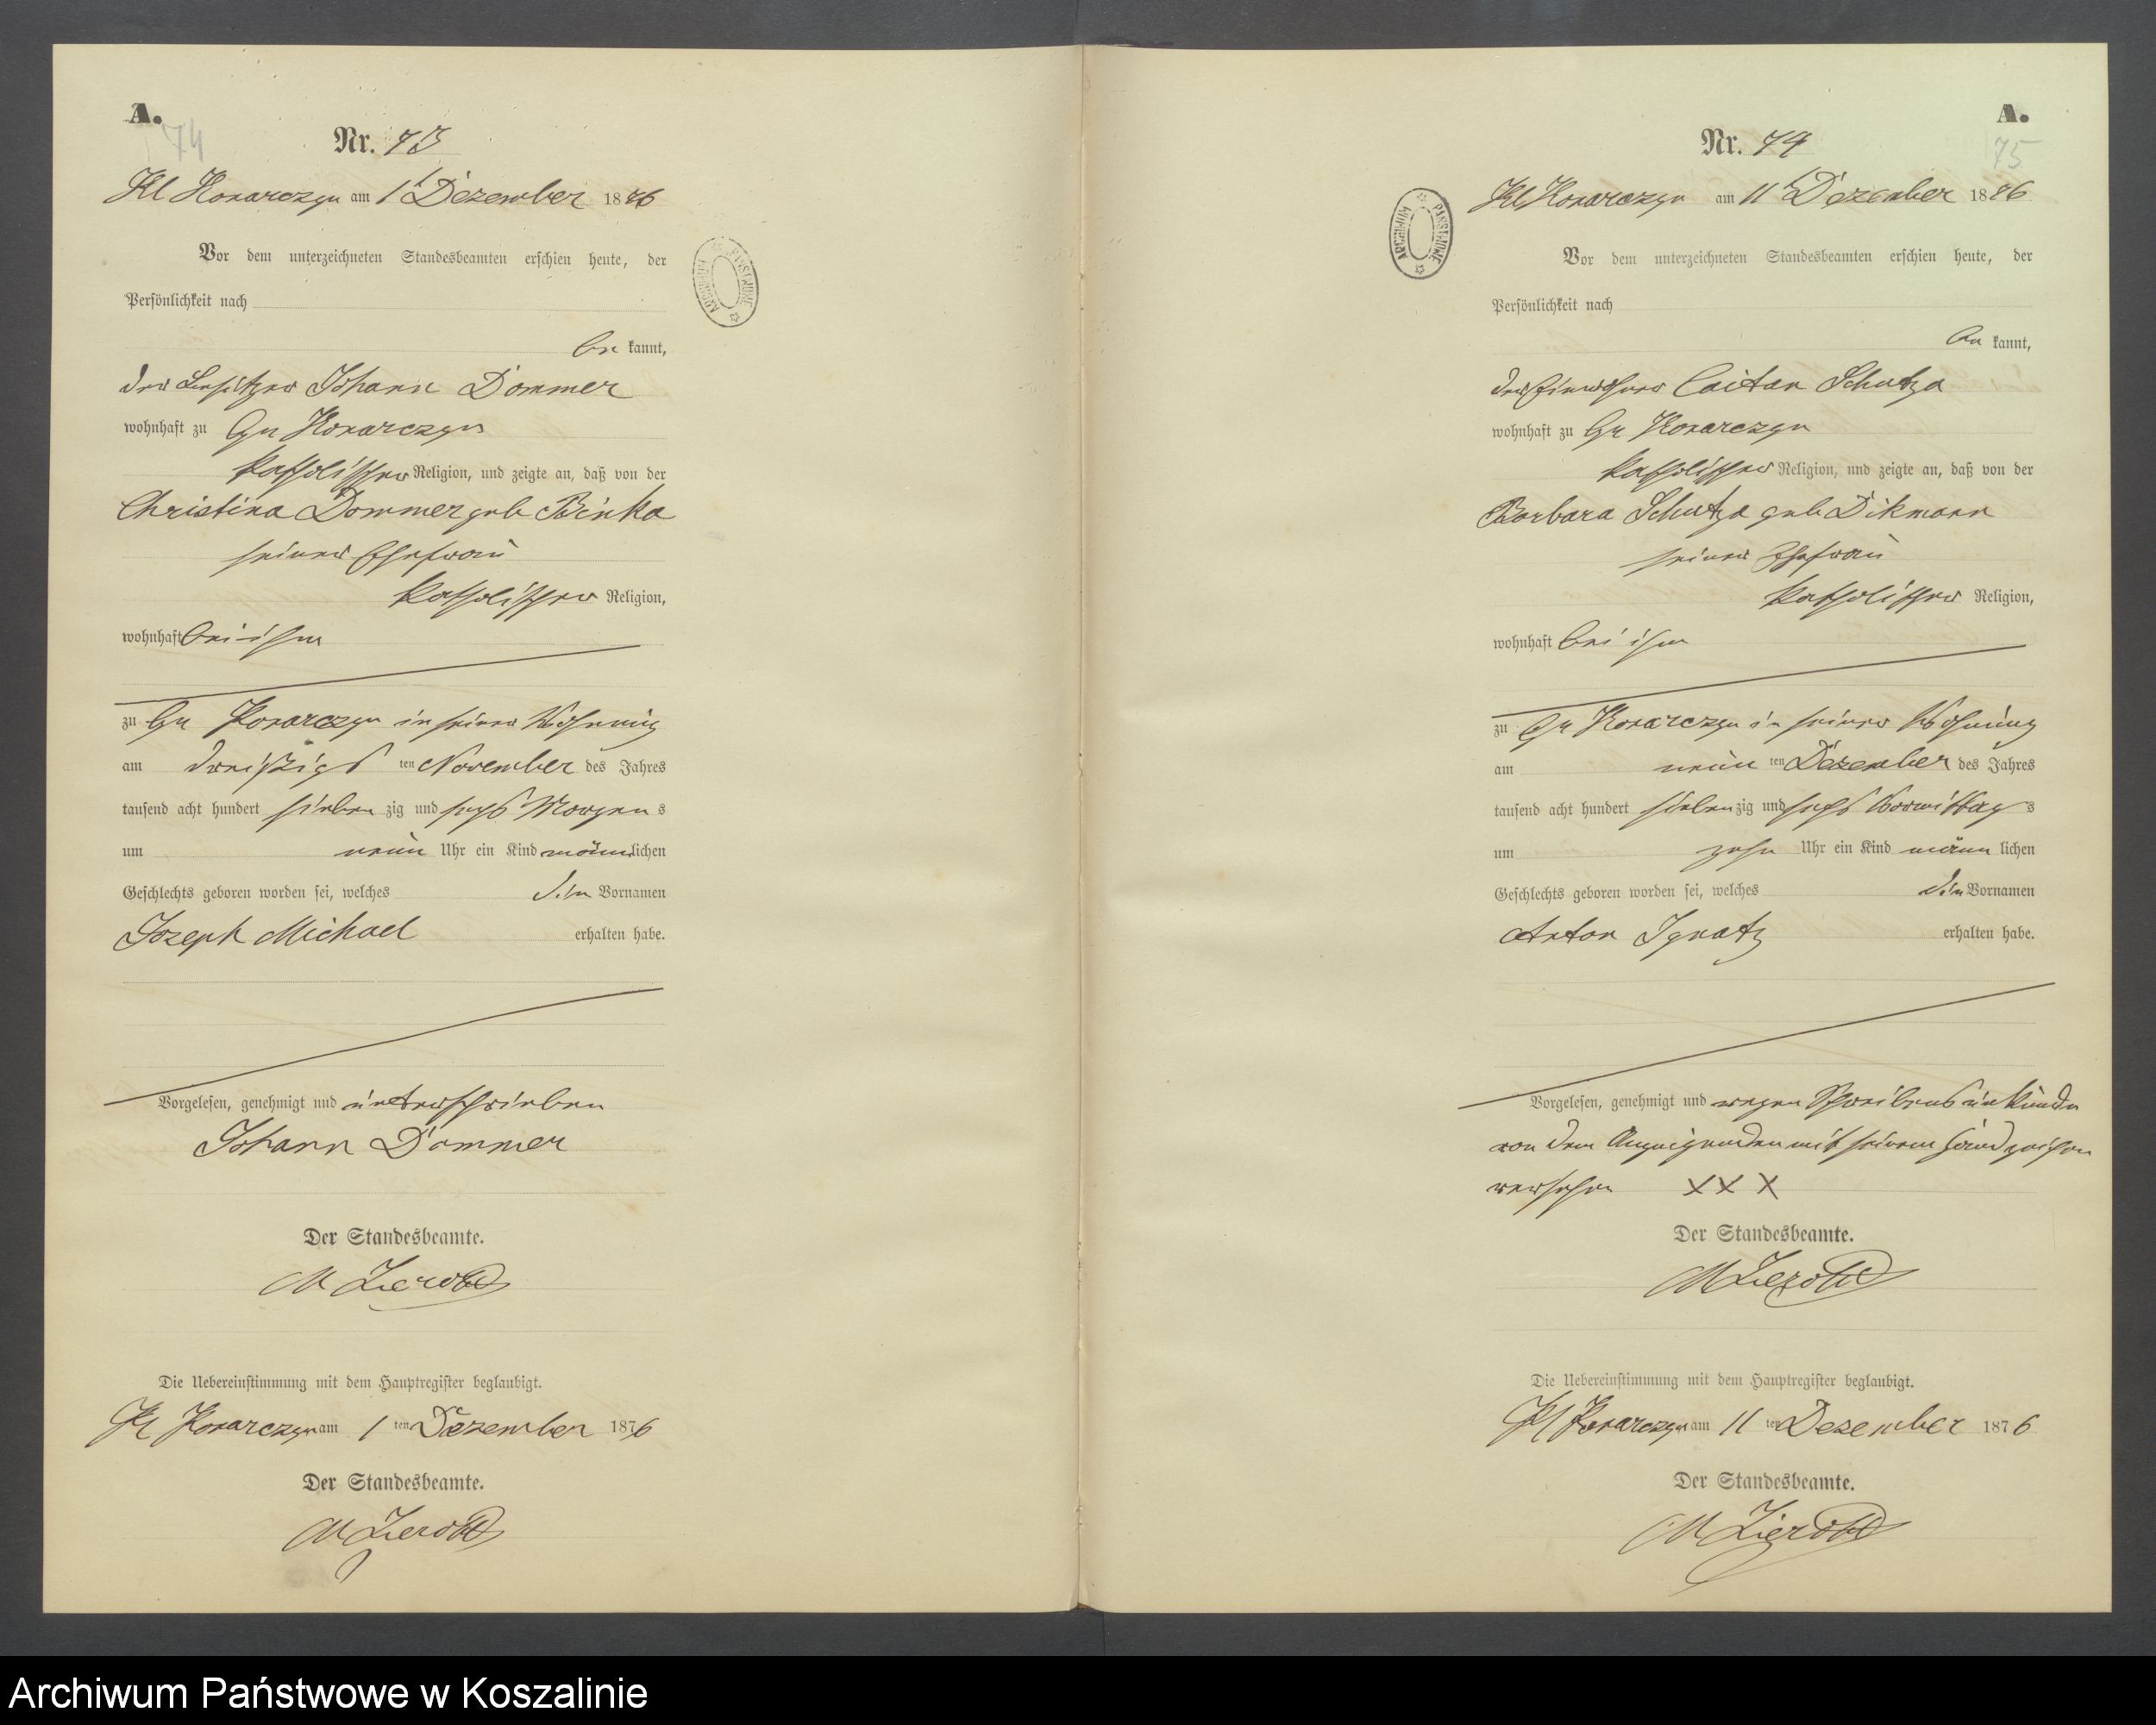 A.
74
Nr. 73
Kl Konarczyn am 1t Dezember 1876
Vor dem unterzeichneten Standesbeamten erschien heute, der
Persönlichkeit nach
be kannt,
der Besitzer Johann Dommer
wohnhaft zu Gr Konarczyn
katholischer Religion, und zeigte an, daß von der
Christina Dommer geb Binka
seiner Ehefrau
katholischer Religion,
wohnhaft bei ihm
zu Gr Konarczyn in seiner Wohnung
am dreißigs ten November des Jahres
tausend acht hundert sieben zig und sechs Morgen s
um neun Uhr ein Kind männlichen
Geschlechts geboren worden sei, welches die Vornamen
Joseph Michael erhalten habe.
Vorgelesen, genehmigt und unterschrieben
Johann Dommer
Der Standesbeamte.
M Zierott
Die Uebereinstimmung mit dem Hauptregister beglaubigt.
Kl Konarczyn am 1 ten Dezember 1876
Der Standesbeamte.
M Zierott
ARCHIWUM PAŃSTWOWE
A.
75
Nr. 74
Kl Konarczyn am 11t Dezember 1876
ARCHIWUM PAŃSTWOWE
Vor dem unterzeichneten Standesbeamten erschien heute, der
Persönlichkeit nach
be kannt,
der Einwohner Caitan Schutza
wohnhaft zu Gr Konarczyn
katholischer Religion, und zeigte an, daß von der
Barbara Schutza geb Dikmann
seiner Ehefrau
katholischer Religion,
wohnhaft bei ihm
zu Gr Konarczyn in seiner Wohnung
am neun ten Dezember des Jahres
tausend acht hundert siebenzig und sechs Vormittag s
um zehn Uhr ein Kind männ lichen
Geschlechts geboren worden sei, welches die Vornamen
Anton Ignatz erhalten habe.
Vorgelesen, genehmigt und wegen Schreibensunkunde
von dem Anzeigenden mit seinem Handzeichen
versehen X X X
Der Standesbeamte.
M Zierott
Die Uebereinstimmung mit dem Hauptregister beglaubigt.
Kl Konarczyn am 11 ten Dezember 1876
Der Standesbeamte.
M Zierott
Archiwum Państwowe w Koszalinie